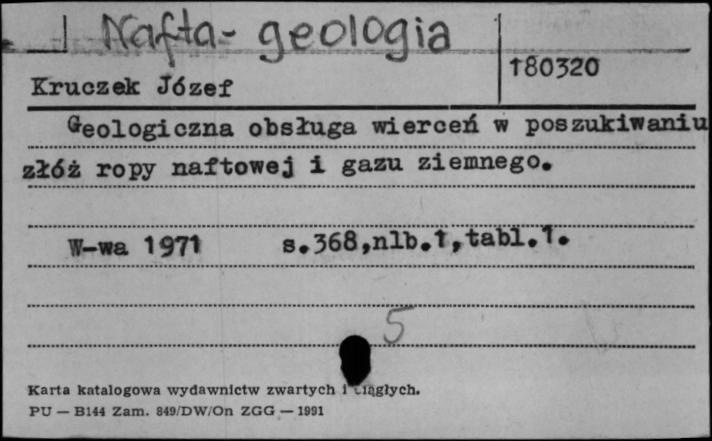 1 Nafta- geologia
Kruczek Józef
180320
Geologiczna obsługa wierceń w poszukiwaniu
złóż ropy naftowej i gazu ziemnego.
W-wa 1971 s.368,nlb.1,tabl.1.
5
Karta katalogowa wydawnictw zwartych i ciągłych.
PU — B144 Zam. 849/DW/On ZGG — 1991